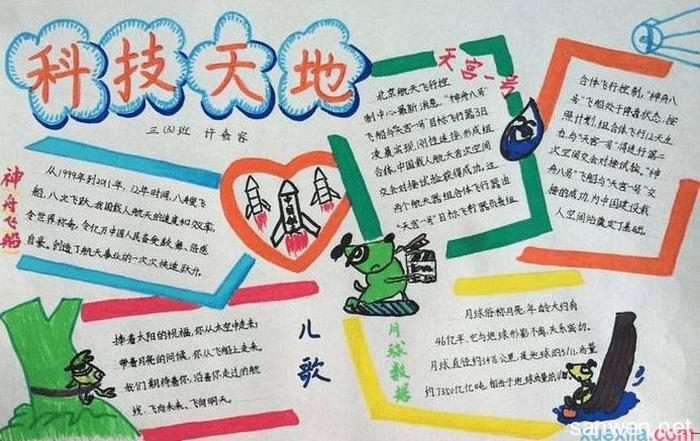 科技天地
三(3)班 许睿容
神舟飞船
从1999年到2011年，12年时间，八舟壁飞
船，八次飞跃，我国载人航天的速度和效率，
令世界称奇，令亿万中国人民备受鼓舞、倍感
自豪。创造了航天事业的一次次快速跃升。
中国航天
天宫一号
北京航天飞行控
制中心最新消息，"神舟八号"
飞船与"天宫一号"目标飞行器3日
凌晨实现刚性连接，形成组
合体，中国载人航天首次空间
交会对接试验获得成功。这
两个航天器组合体飞行器由
"天宫一号"目标飞行器负责组
合体飞行控制，"神舟八
号"飞船处于停靠状态。按
照计划，组合体飞行12天左
右，与"天宫一号"将进行第二
次空间交会对接试验。"神
舟八号"飞船与"天宫一号"交
接的成功，为中国建设载
人空间站奠定了基础。
儿歌
捧着太阳的祝福，你从太空中走来，
带着月亮的问候，你从飞船上走来。
我们期待着你，沿着你走过的航
线，飞向未来、飞向明天。
月球数据
月球俗称月亮，年龄大约有
46亿年，它与地球形影不离，关系密切。
月球直径约3476公里，是地球的3/11，质量
约7350亿亿吨，相当于地球质量的1/81
sanwen.net
xuexila.com